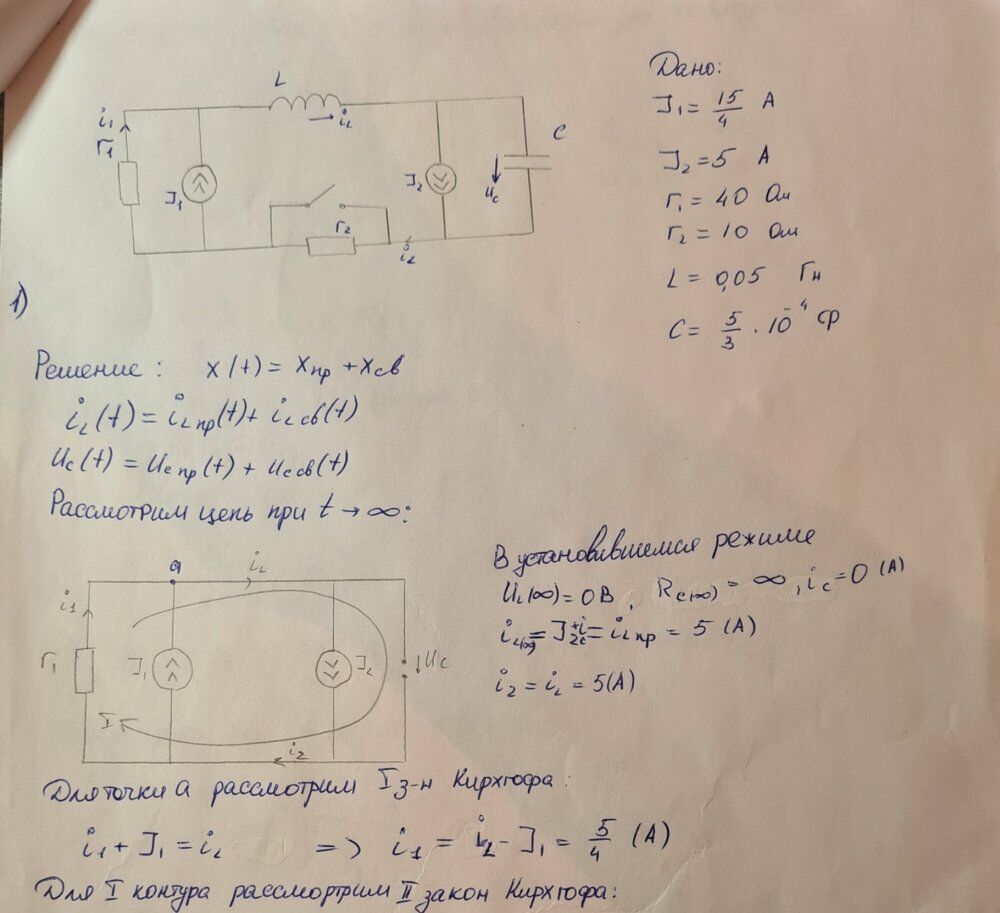 L
i₁
r₁
J₁
i_L
J₂
C
u_c
r₂
i₂
Дано:
J₁ = 15/4 А
J₂ = 5 А
r₁ = 40 Ом
r₂ = 10 Ом
L = 0,05 Гн
C = 5/3 · 10⁻⁴ ф
1)
Решение: x(t) = x_пр + x_св
i_L(t) = i_L пр(t) + i_L св(t)
u_c(t) = u_c пр(t) + u_c св(t)
Рассмотрим цепь при t → ∞:
a
i_L
i₁
r₁
J₁
J₂
u_c
I
i₂
В установившемся режиме
U_L(∞) = 0 В, R_c(∞) = ∞, i_c = 0 (А)
i_L(∞) = J₂ + i_c = i_L пр = 5 (А)
i₂ = i_L = 5(А)
Для точки а рассмотрим I з-н Кирхгофа:
i₁ + J₁ = i_L => i₁ = i_L - J₁ = 5/4 (А)
Для I контура рассмортрим II закон Кирхгофа: